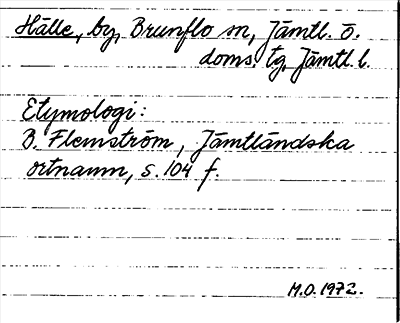 Hälle, by, Brunflo sn, Jämtl. ö.
doms. tg, Jämtl. l.
Etymologi:
B. Flemström, Jämtländska
ortnamn, s. 104 f.
M.O. 1972.